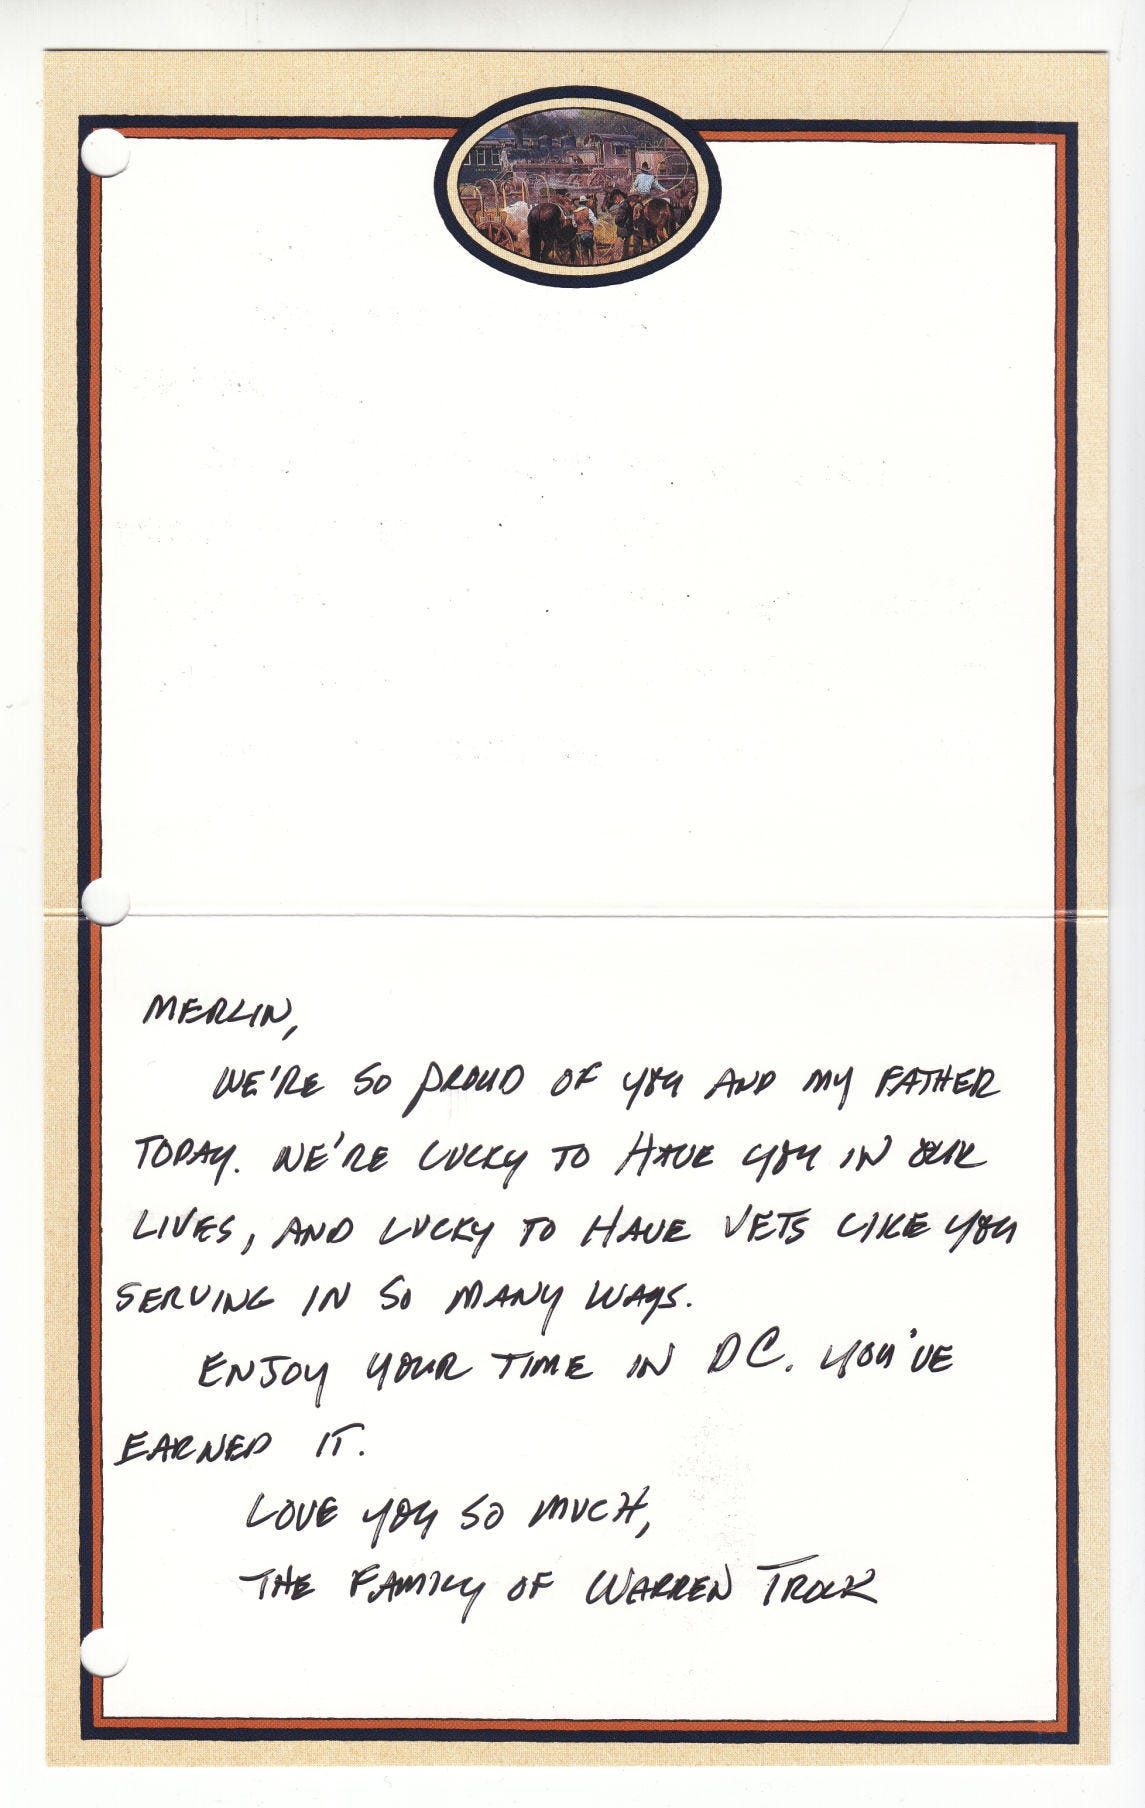 MERLIN,
WE'RE SO PROUD OF YOU AND MY FATHER
TODAY. WE'RE LUCKY TO HAVE YOU IN OUR
LIVES, AND LUCKY TO HAVE VETS LIKE YOU
SERVING IN SO MANY WAYS.
ENJOY YOUR TIME IN DC. YOU'VE
EARNED IT.
LOVE YOU SO MUCH,
THE FAMILY OF WARREN TROCK